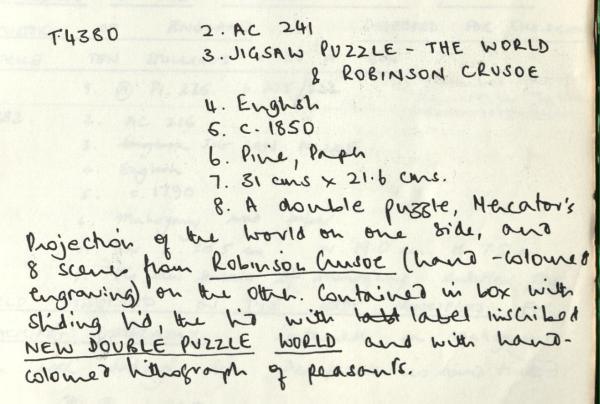 T4380 2. AC 241
3. JIGSAW PUZZLE - THE WORLD
& ROBINSON CRUSOE
4. English
5. c. 1850
6. Pine, Paper
7. 31 cms x 21.6 cms.
8. A double puzzle, Mercator's
Projection of the World on one side, and
8 scenes from Robinson Crusoe (hand-coloured
engraving) on the other. Contained in box with
sliding lid, the lid with label inscribed
NEW DOUBLE PUZZLE WORLD and with hand-
coloured lithograph of peasants.